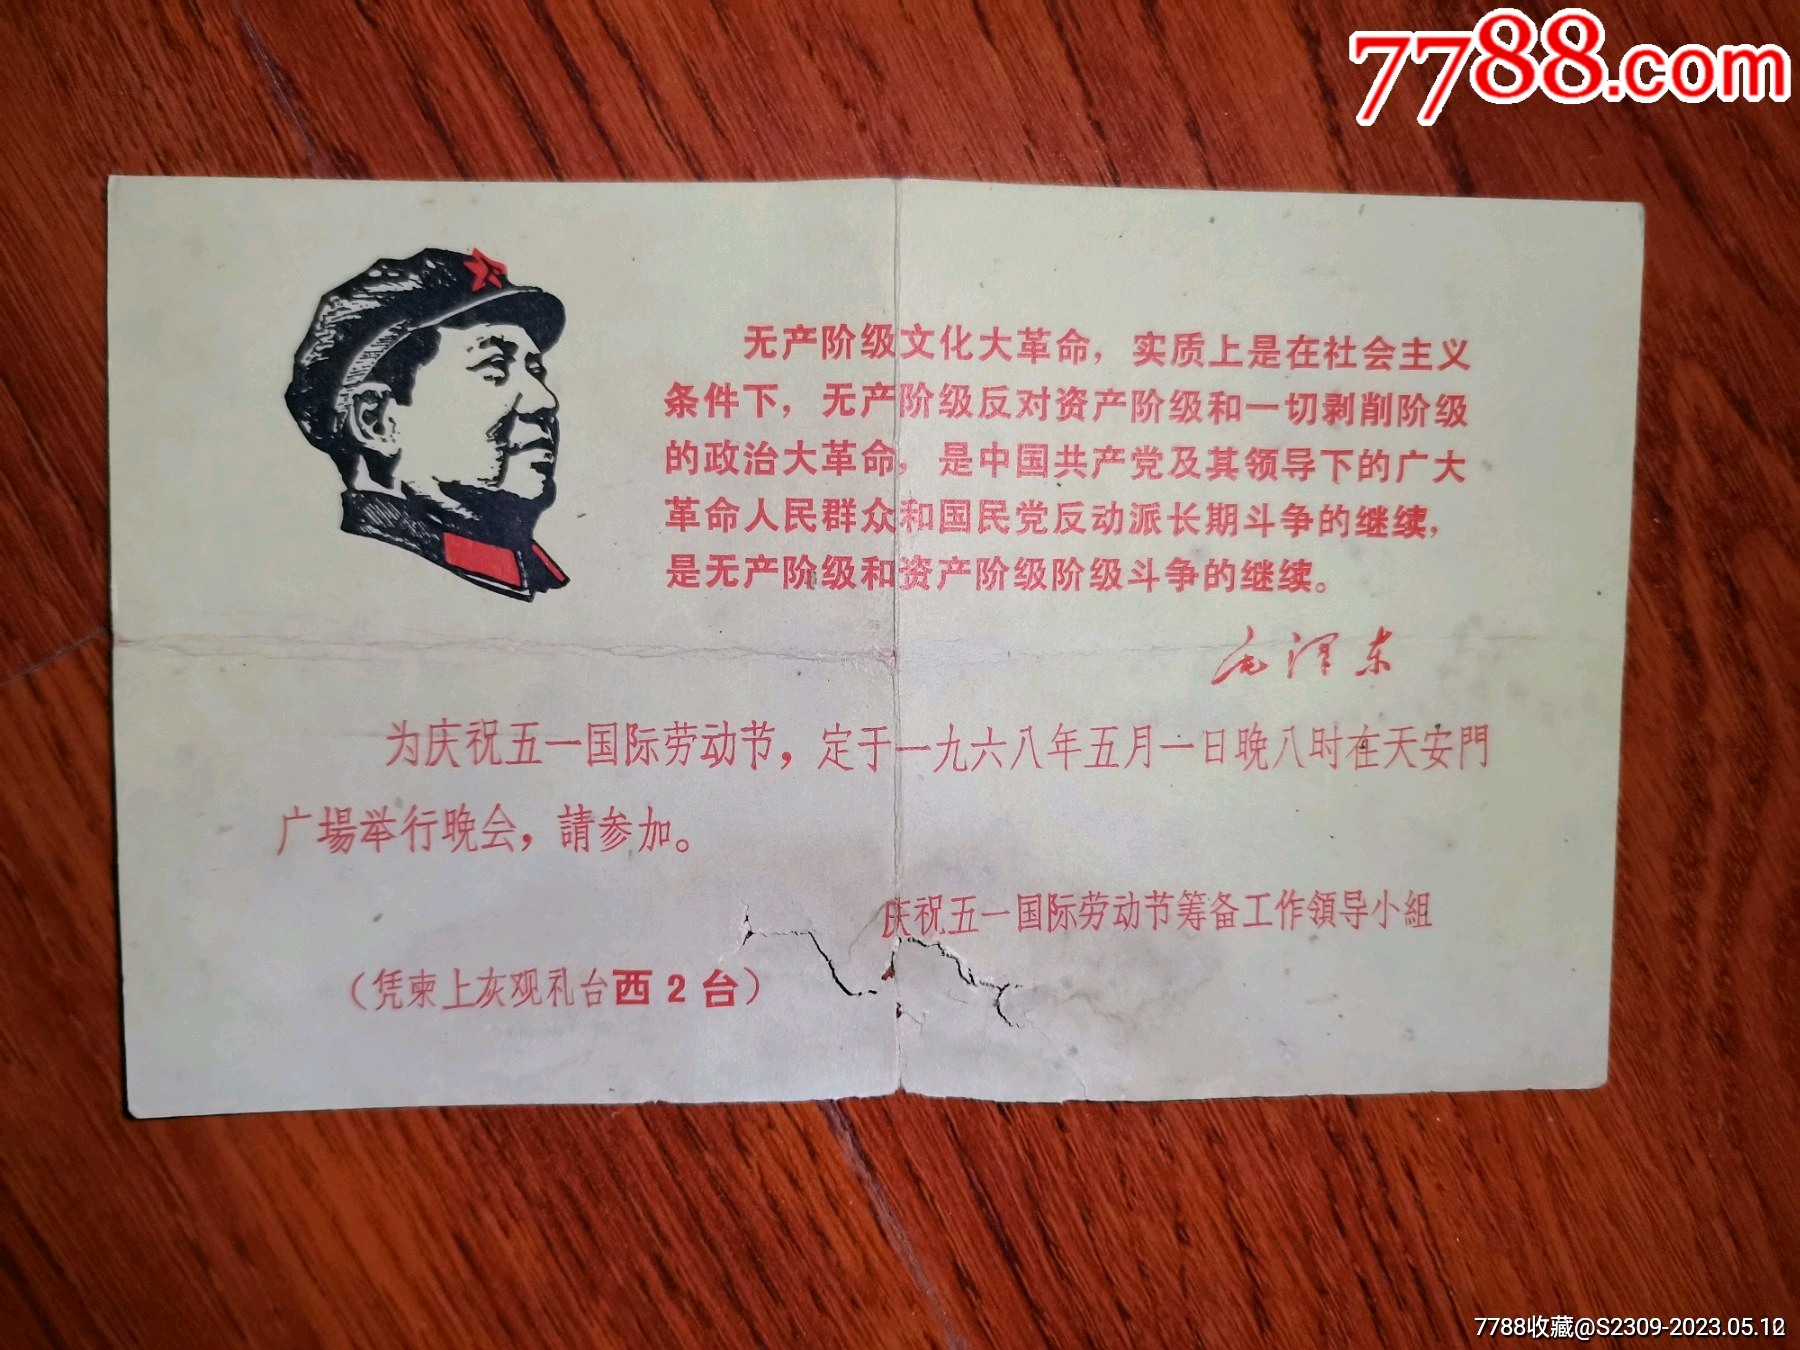 7788.com
无产阶级文化大革命，实质上是在社会主义
条件下，无产阶级反对资产阶级和一切剥削阶级
的政治大革命，是中国共产党及其领导下的广大
革命人民群众和国民党反动派长期斗争的继续，
是无产阶级和资产阶级阶级斗争的继续。
毛泽东
为庆祝五一国际劳动节，定于一九六八年五月一日晚八时在天安門
广場举行晚会，請参加。
庆祝五一国际劳动节筹备工作領导小組
（凭柬上灰观礼台西2台）
7788收藏@S2309-2023.05.12